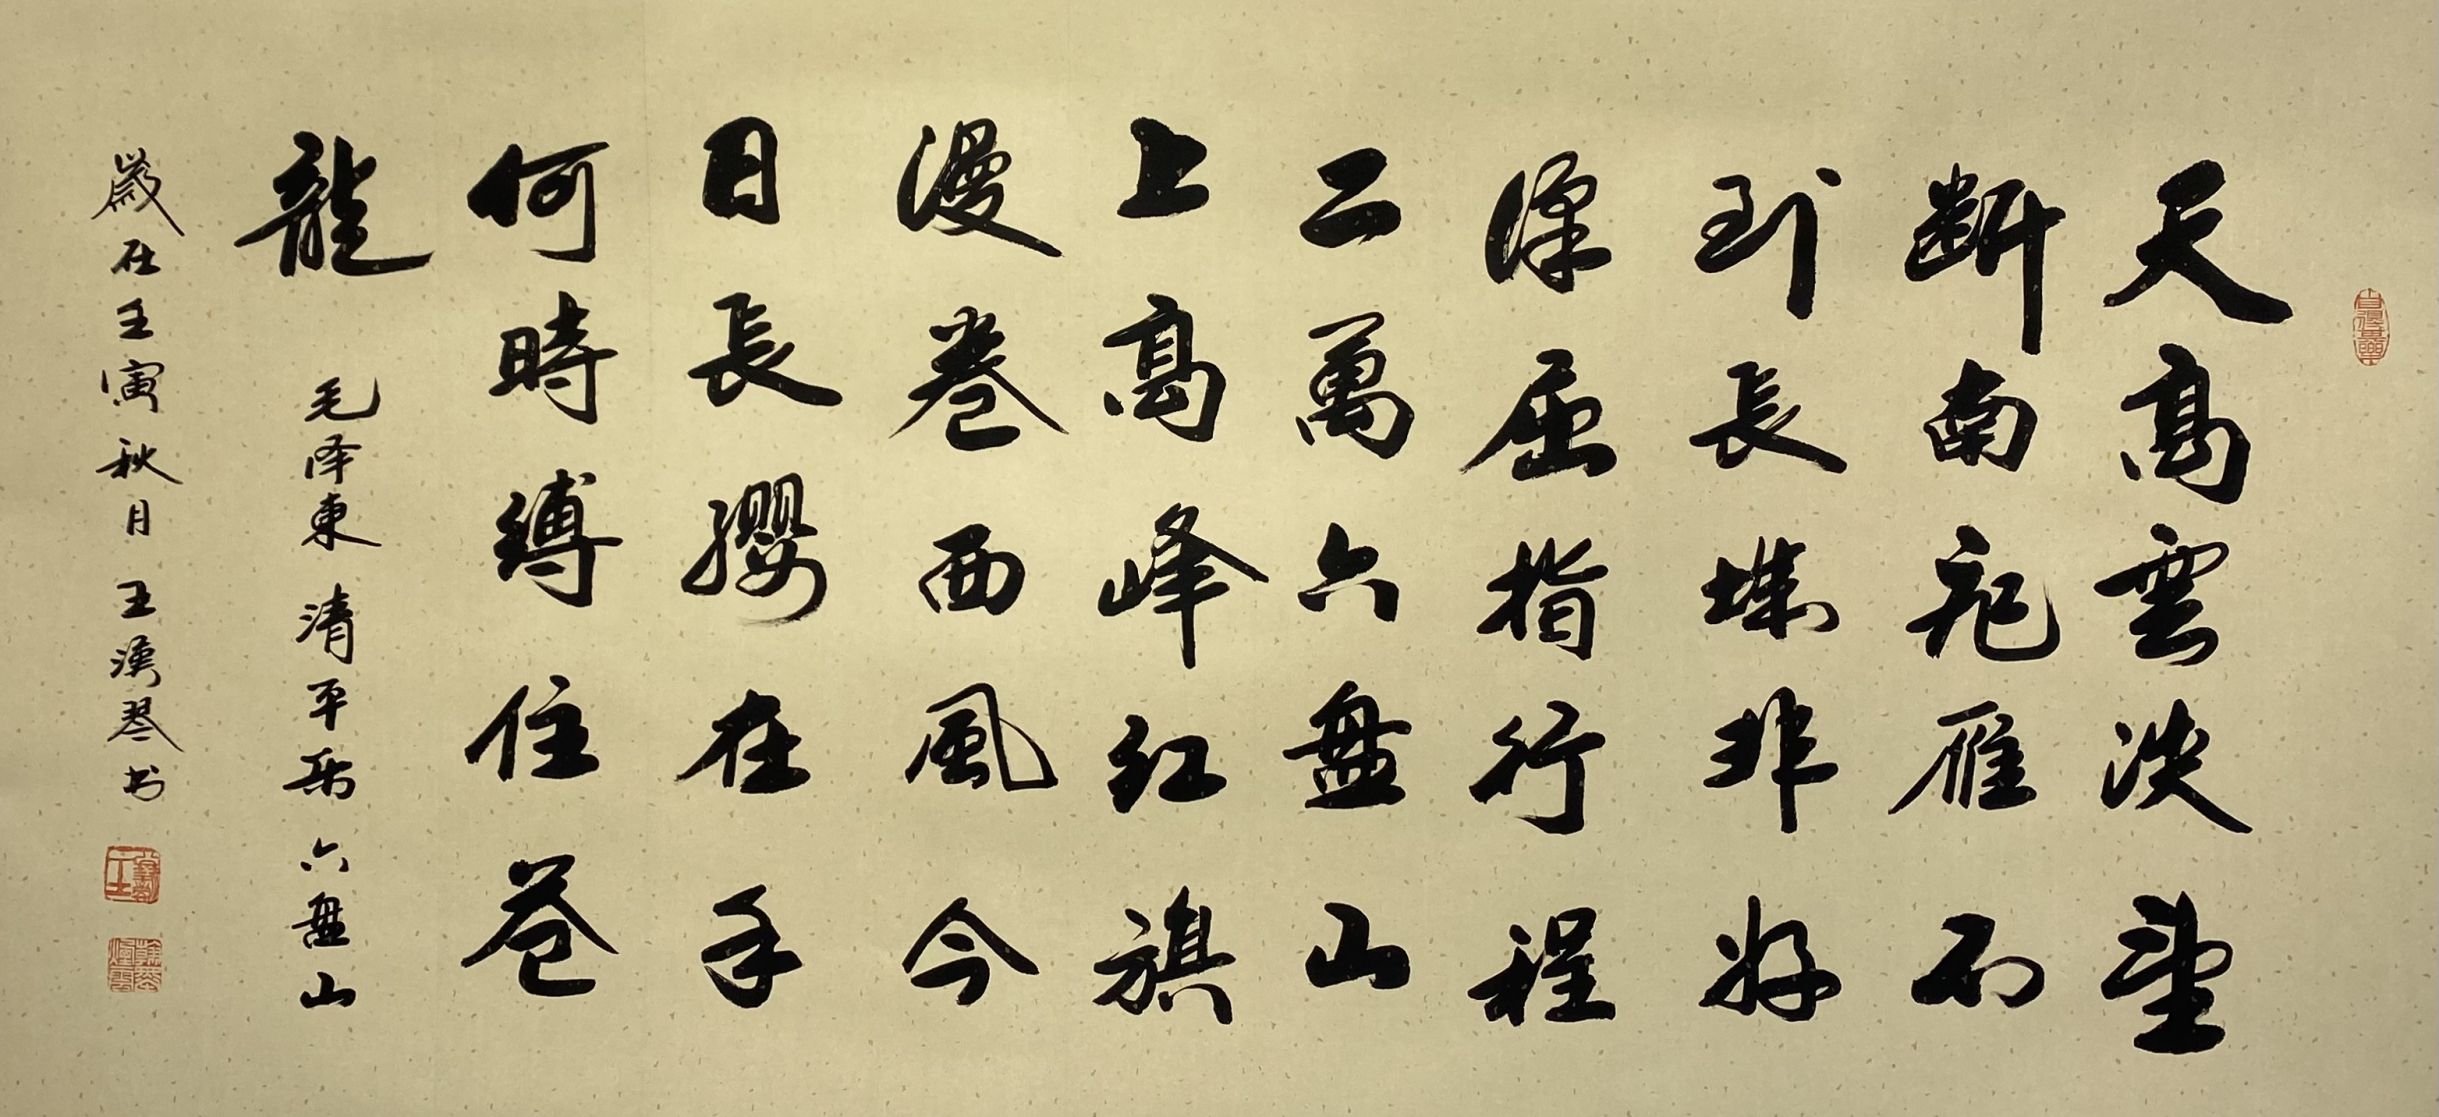 天高雲淡望
斷南飛雁不
到長城非好
漢屈指行程
二萬六盘山
上高峰红旗
漫卷西風今
日長纓在手
何時縛住蒼
龍 毛泽東 清平乐 六盘山
歲在壬寅秋月 王琴书
翰墨煙雲